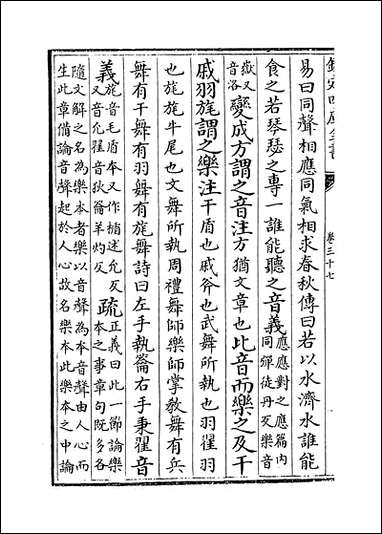 欽定四庫全書
卷三十七
易曰同聲相應同氣相求春秋傳曰若以水濟水誰能
食之若琴瑟之專一誰能聽之音義應應對之應篇內
同彈徒丹反樂音
嶽又
音洛變成方謂之音注方猶文章也比音而樂之及干
戚羽旄謂之樂注干盾也戚斧也武舞所執也羽翟羽
也旄旄牛尾也文舞所執周禮舞師樂師掌教舞有兵
舞有干舞有羽舞有旄舞詩曰左手執籥右手秉翟音
義旄音毛盾本又作楯述允反
又音允翟音狄籥羊灼反疏正義曰此一節論樂
本之事章句既多各
隨文解之名為樂本者樂以音聲為本音聲由人心而
生此章備論音聲起於人心故名樂本此樂本之中論